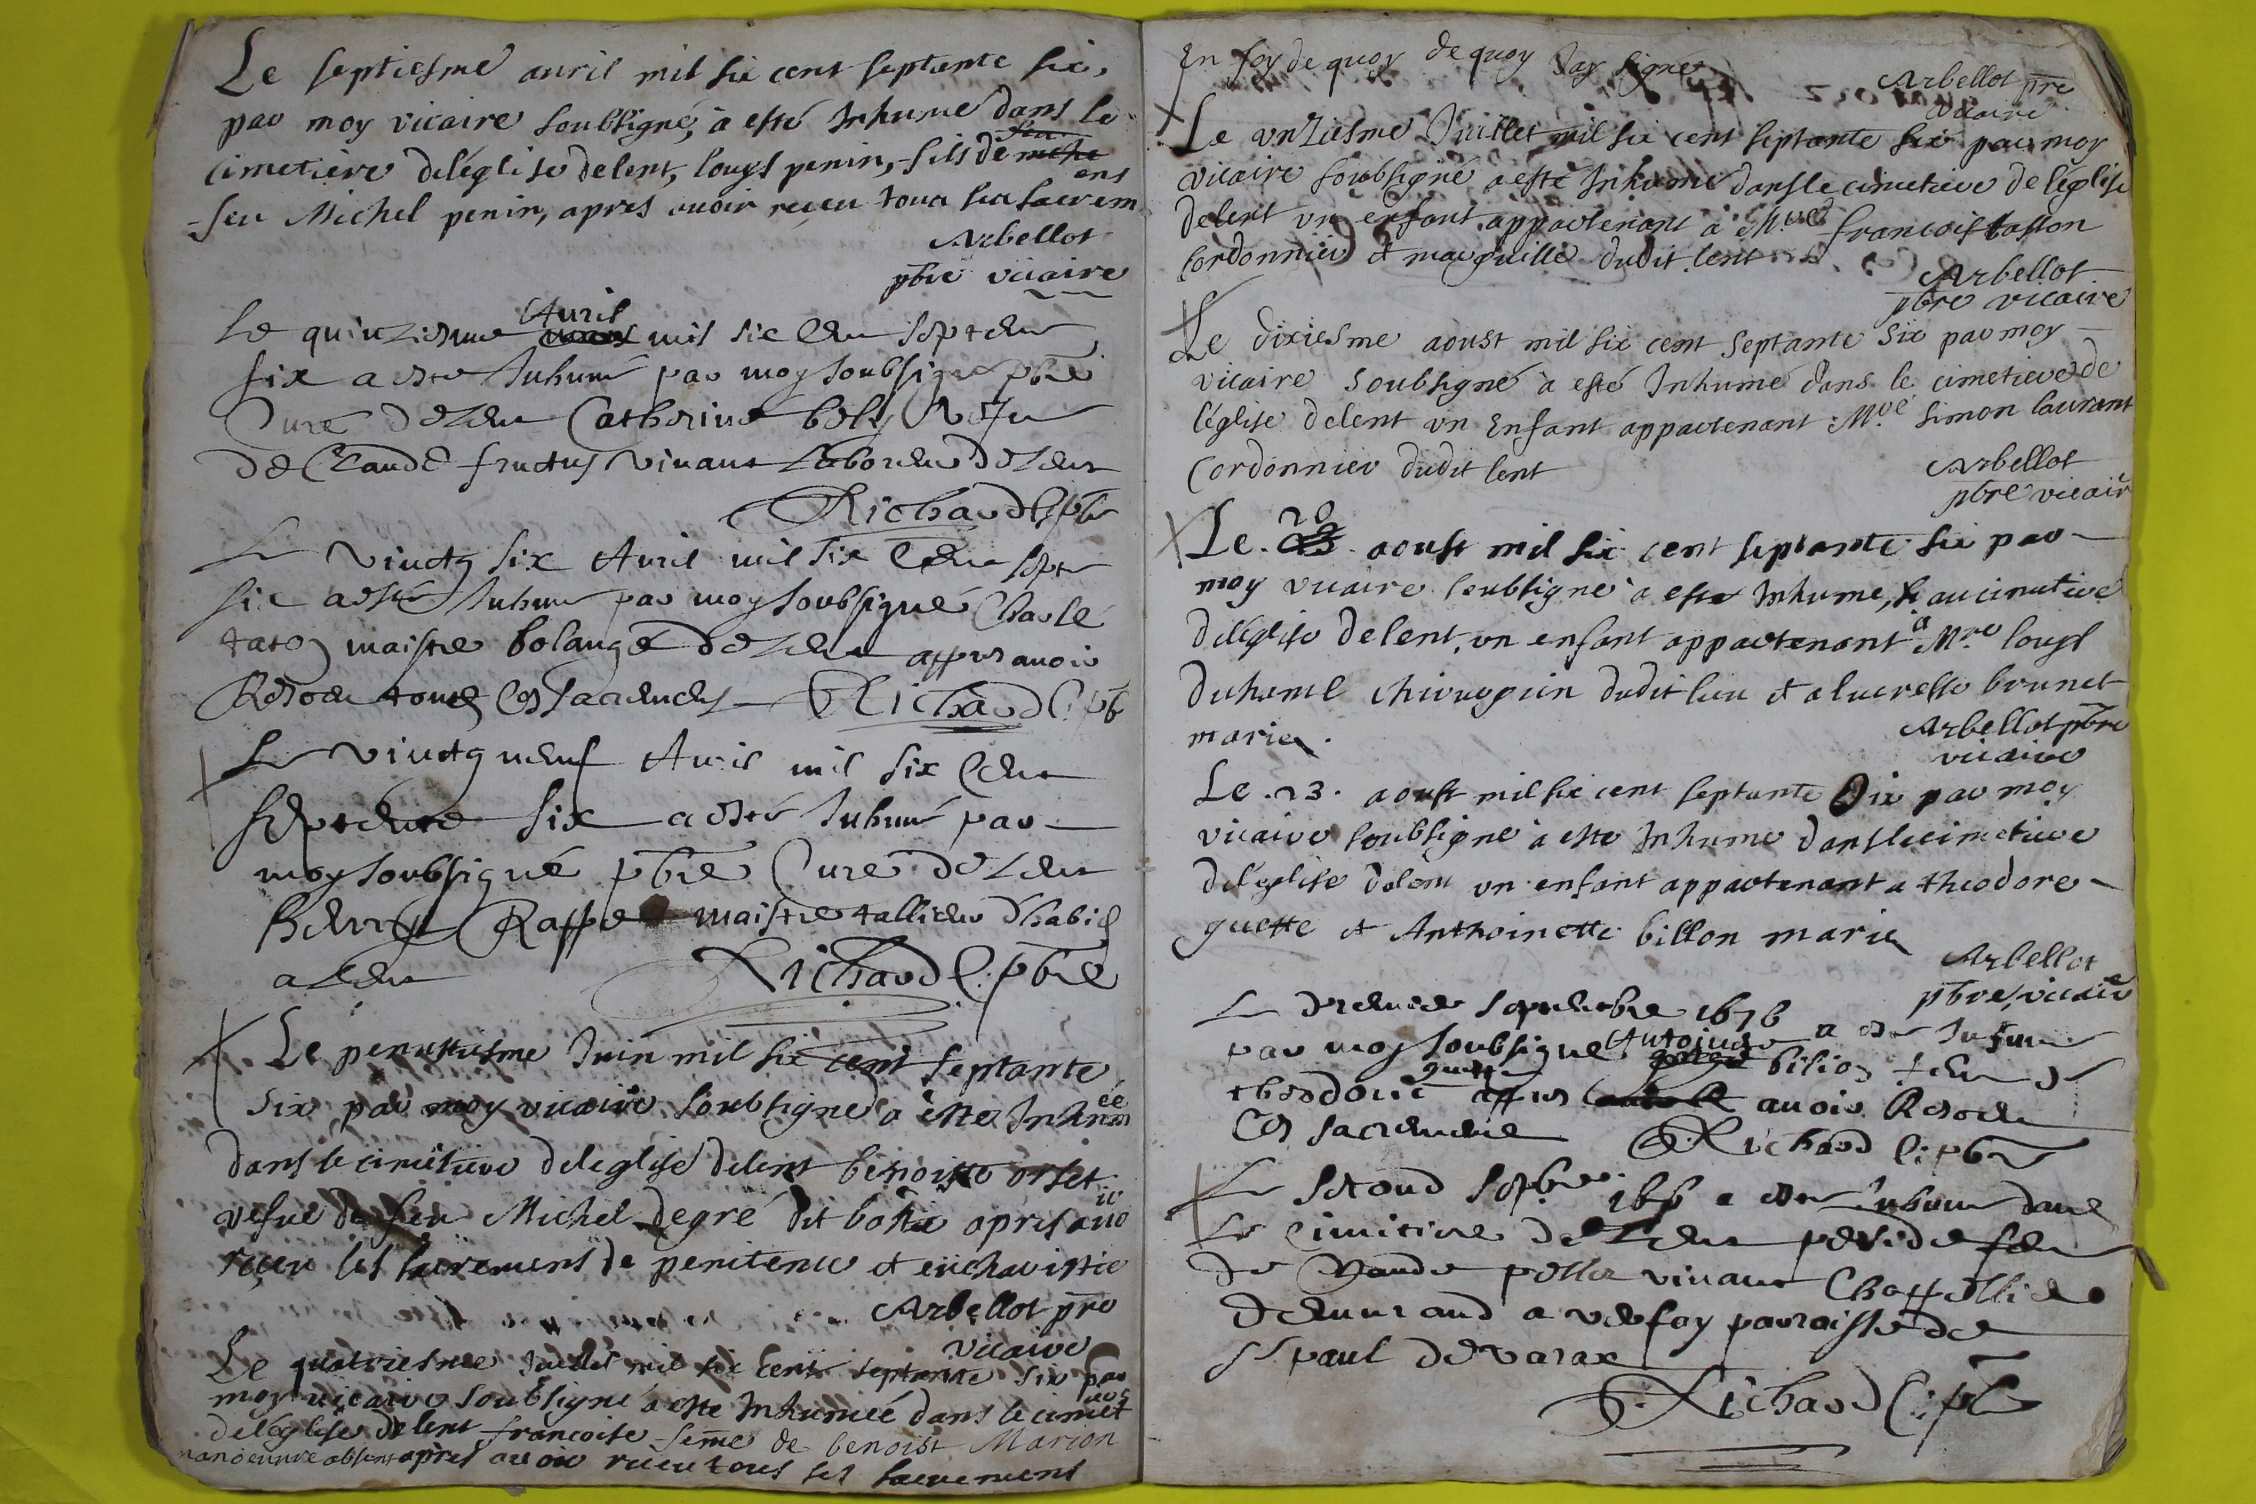 Le septiesme auril mil six cent septante six,
par moy vicaire soubsigné, à esté Inhumé dans le
cimetiere deléglise delent, louys penin, fils de
feu Michel penin, apres auoir reçeu tous ses sacrem
ens
Arbellot
pbre vicaire
Le quinziesme Auril mil six Cen septen
six a este Inhumé par moy soubsigné pbre
Curé de Lent Catherine
de Claude fructus viuant Laboreur de Lent
Richard C. pbr
Le vingtz six Auril mil six Cen sept
six a esté Inhume par moy soubsigné Charle
maistre bolangé de Lent appres auoir
Resoeu toues Ces sacremens Richard C. pb
Le vingtz neuf Auril mil six Cent
septente six a esté Inhumé par
moy soubsigné pbre Curé de Lent
Rappe maistre tallieur d'habis
a Lent
Richard C. pbre
Le penultiesme Iuin mil six cent septante
six, par moy vicaire soubsigné a este Inhumée
dans le cimetiere deleglise delent benoitte orset
vesue de feu Michel degré dit apres auoir
reçeu les sacremens de penitence et eucharistie
Arbellot pre
vicaire
Le quatriesme Juillet mil six cent septante six par
moy vicaire soubsigné a este Inhumeé dans le cimet
deléglise delent francoise feme de benoist Marion
absent apres auoir receu tous ses sacremens
En foy de quoy de quoy Jay signé
Arbellot pre
vicaire
Le vnziesme Juillet mil six cent septante six par moy
vicaire soubsigné a esté Inhumé dans le cimetiere de léglise
delent vn enfant appartenant à francois
Cordonnier et marguillé dudit lent
Arbellot
pbre vicaire
Le dixiesme aoust mil six cent septante six par moy
vicaire soubsigné à esté Inhumé dans le cimetiere de
léglise delent vn Enfant appartenant Mre simon laurant
Cordonnier dudit lent
Arbellot
pbre vicair
Le . 20 . aoust mil six cent septante six par
moy vicaire soubsigné à este Inhume, au cimetiere
deléglise delent, vn enfant appartenant à Mre louys
duhamel chirurgien dudit lieu et a lucresse brunet
mariez.
Arbellot pbre
vicaire
Le . 23 . aoust mil six cent septante six par moy
vicaire soubsigné à este Inhume dans le cimetiere
deleglise delent vn enfant appartenant a theodore
guette et Anthoinette billon mariez
Arbellot
pbre, vicaire
Le premier septembre 1676
par moy soubsigné Antoine a este Inhume
guette appres auoir Resoeu
Ces sacremens Richard C. pbre
Le second sepbre 1676 a este Inhume dans
Le cimitiere de Lent
de Claude viuant
demurand a verfay parroisse de
St paul de varax
Richard C. pbr